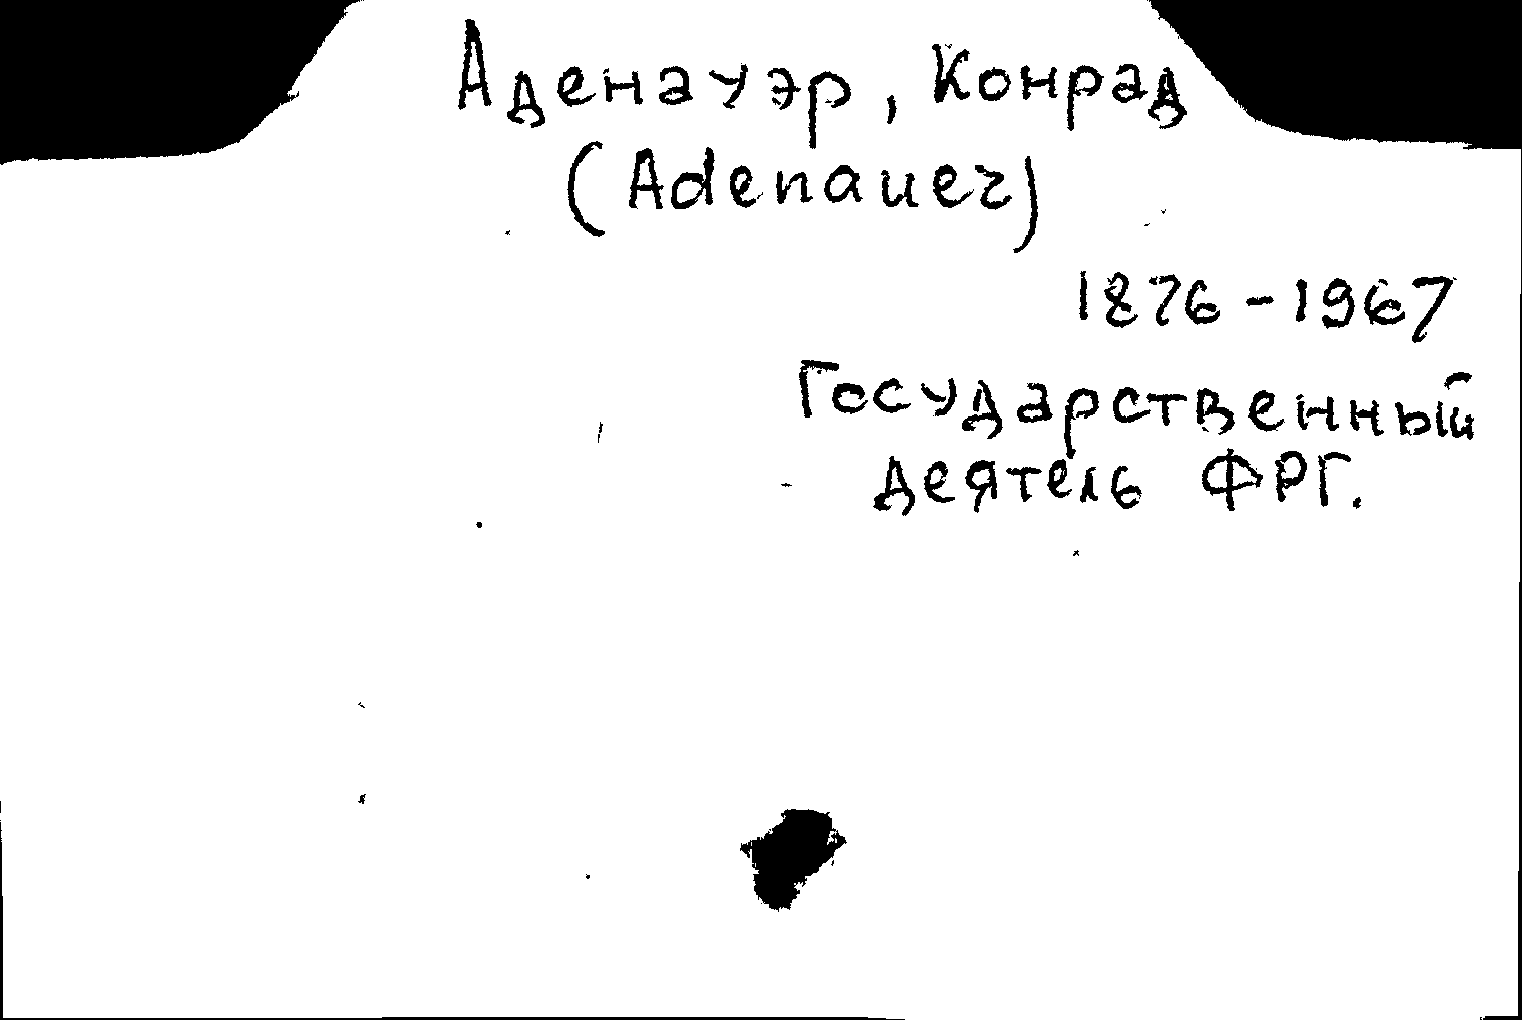 Аденауэр, Конрад
(Adenauer)
1876-1967
Государственный
деятель ФРГ.